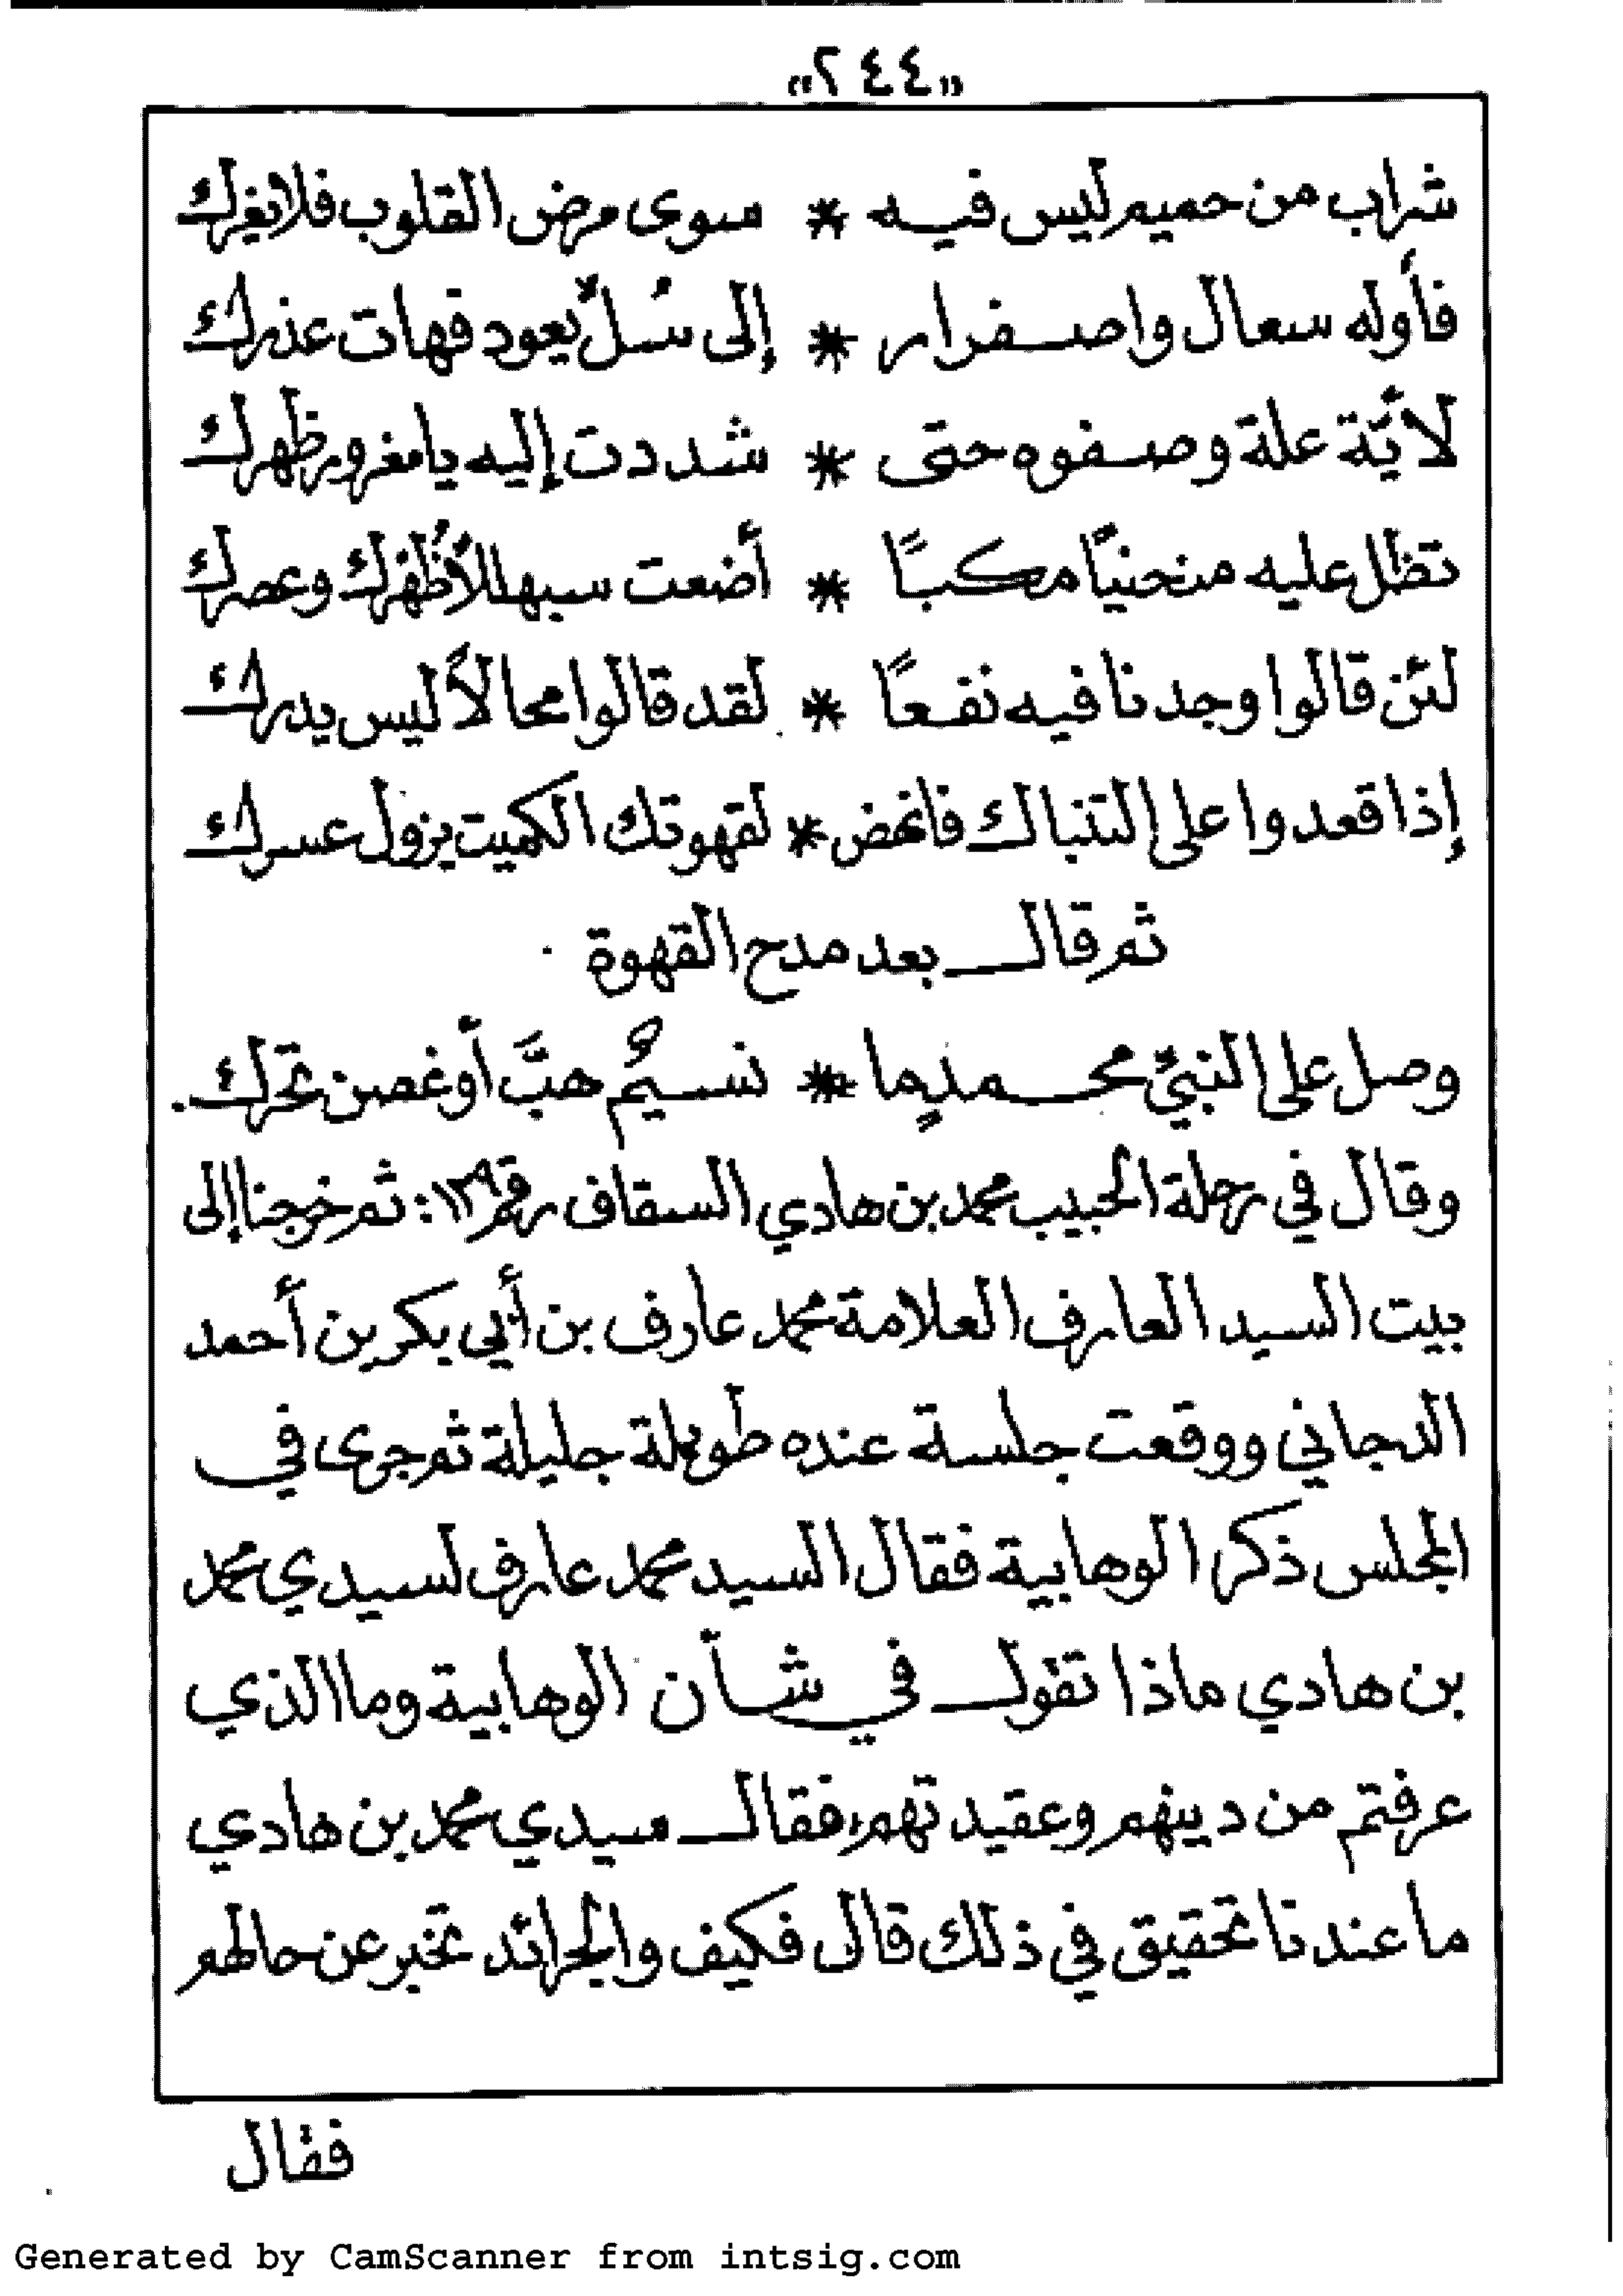 «٢٤٤»
شراب من حميم ليس فيه * سوى مرض القلوب فلا يغرك
فأوله سعال واصفرار * إلى سُلٍّ يعود فهات عذرك
لأيّة علة وصفوه حتى * شددت إليه يا مغرور ظهرك
تظل عليه منحنيًا مكبًا * أضعت سبهللاً ظُفرك وعصرك
لئن قالوا وجدنا فيه نفعًا * لقد قالوا محالاً ليس يدرك
إذا قعدوا على التنباك فانهض * لقهوتك الكميت يزول عسرك
ثم قال بعد مدح القهوة
وصل على النبيّ محمدٍ ما * نسيمٌ هبَّ أو غصن تحرك.
وقال في رحلة الحبيب محمد بن هادي السقاف رقم ١٢٩: ثم خرجنا إلى
بيت السيد العارف العلامة محمد عارف بن أبي بكر بن أحمد
الدجاني ووقعت جلسة عنده طويلة جليلة ثم جرى في
المجلس ذكر الوهابية فقال السيد محمد عارف لسيدي محمد
بن هادي ماذا تقول في شأن الوهابية وما الذي
عرفتم من دينهم وعقيدتهم، فقال سيدي محمد بن هادي
ما عندنا تحقيق في ذلك قال فكيف والجرائد تخبر عن حالهم
فقال
Generated by CamScanner from intsig.com